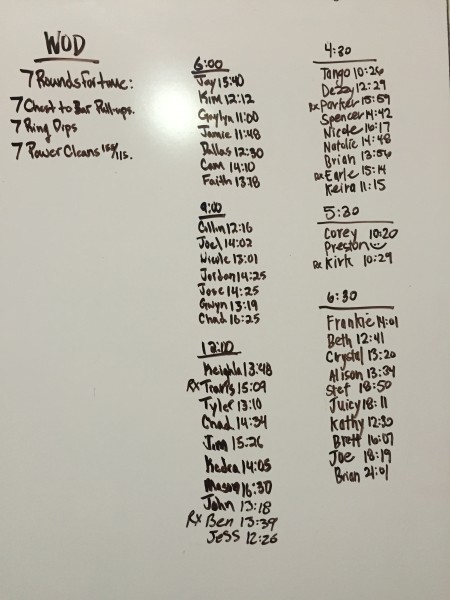 WOD
7 Rounds for time:
7 Chest to Bar Pull-ups.
7 Ring Dips
7 Power Cleans 155/115.
6:00
Jay 15:40
Kim 12:12
Gaylyn 11:00
Jamie 11:48
Dallas 12:30
Cam 14:10
Faith 13:78
9:00
Collin 12:16
Joel 14:02
Nicole 13:01
Jordan 14:25
Jose 14:25
Gwyn 13:19
Chad 16:25
12:00
Keighla 13:48
Rx Travis 15:09
Tyler 13:10
Chad 14:34
Jim 15:26
Kedra 14:05
Mason 16:30
John 13:18
Rx Ben 13:39
Jess 12:26
4:30
Tango 10:26
Dezzy 12:29
Rx Parker 15:59
Spencer 14:42
Nicole 16:17
Natalie 14:48
Brian 13:56
Rx Earle 15:14
Keira 11:15
5:30
Corey 10:20
Preston
Rx Kirk 10:29
6:30
Frankie 14:01
Beth 12:41
Crystal 13:20
Alison 13:34
Stef 18:50
Juicy 18:11
Kathy 12:30
Brett 16:07
Joe 18:19
Brian 21:01